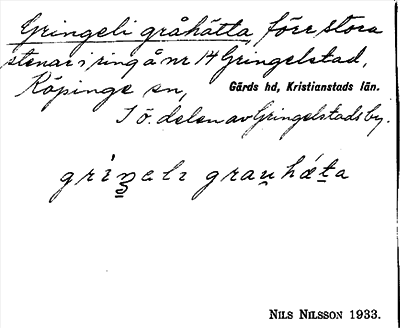 Gringeli gråhätta, före stora
stenar i ring å nr 14 Gringelstad,
Köpinge sn, Gärds hd, Kristianstads län.
I ö. delen av Gringelstads by.
NILS NILSSON 1933.